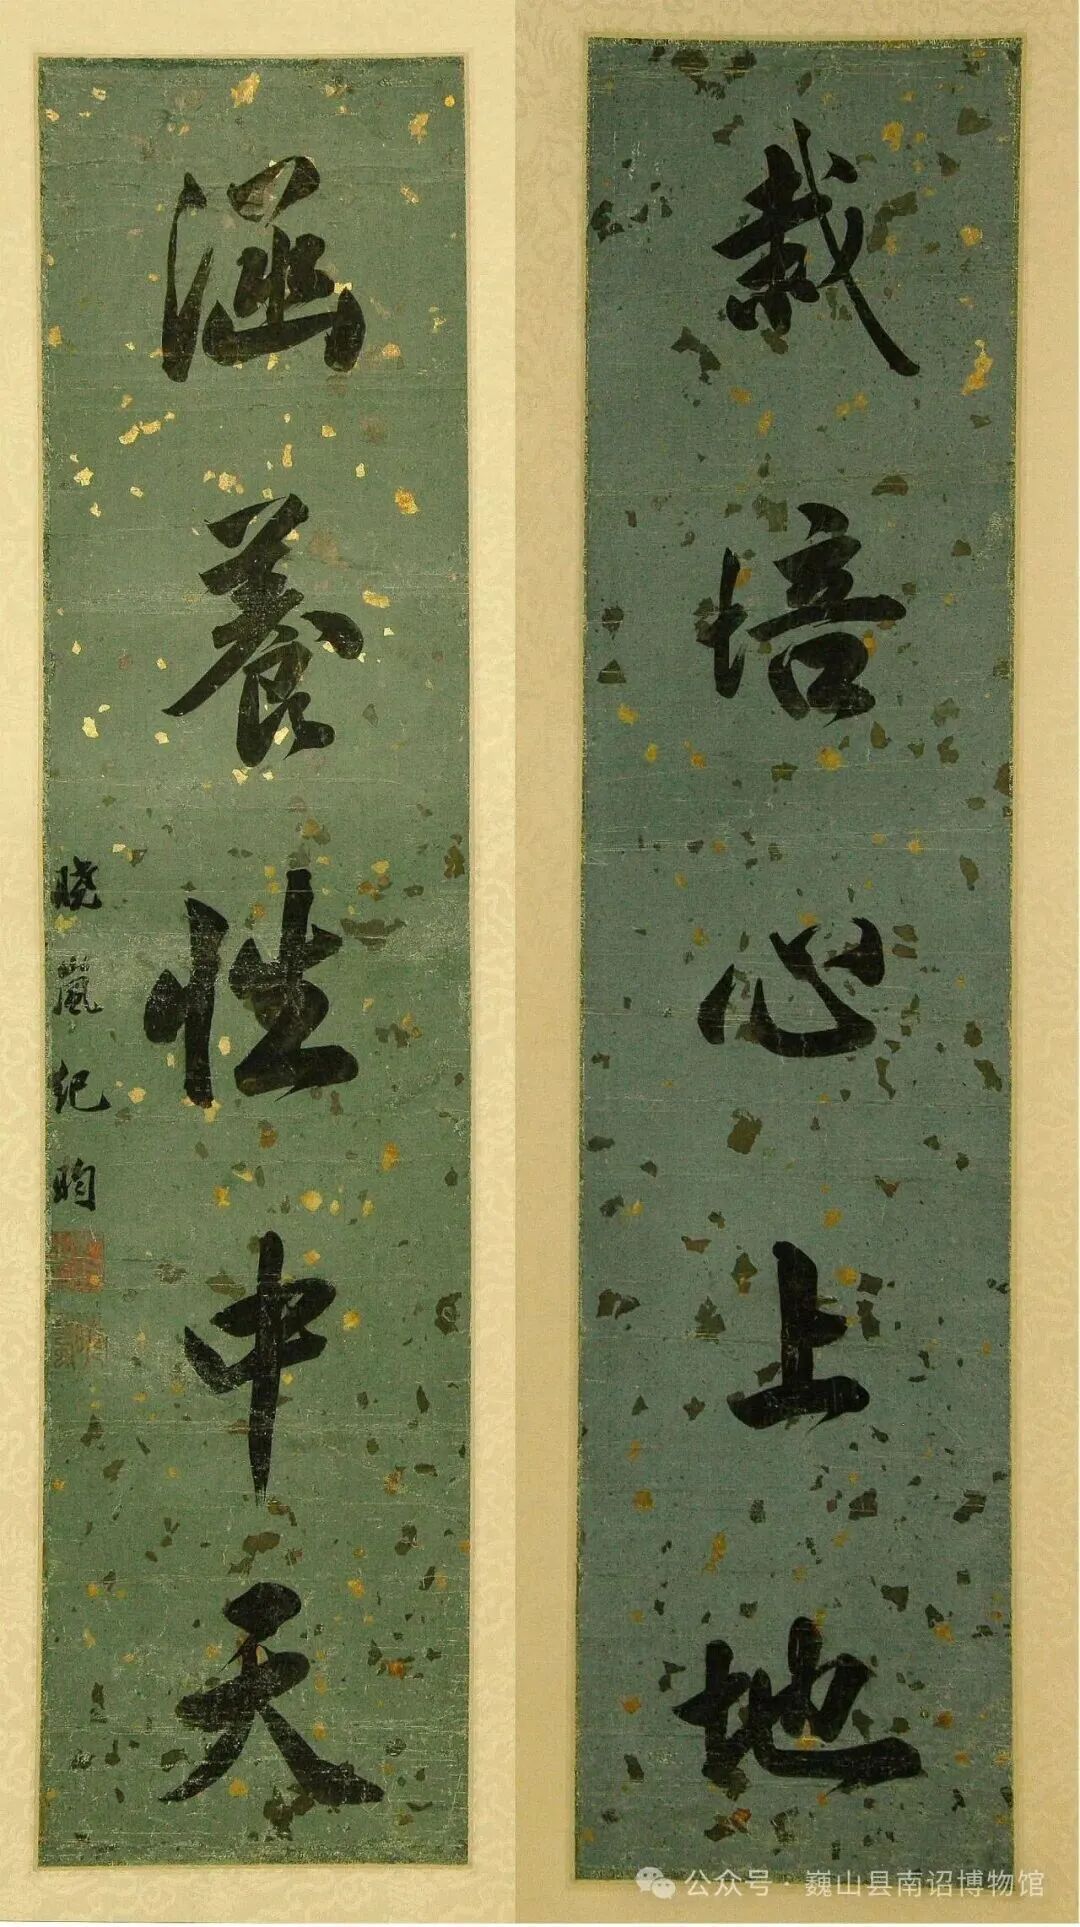 栽培心上地
涵養性中天
曉嵐紀昀
公众号·巍山县南诏博物馆